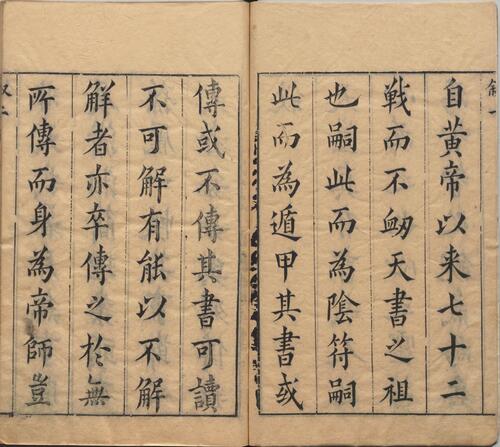 自黃帝以来七十二
戰而不衂天書之祖
也嗣此而為陰符嗣
此而為遁甲其書或
傳或不傳其書可讀
不可解有能以不解
解者亦卒傳之於無
所傳而身為帝師豈